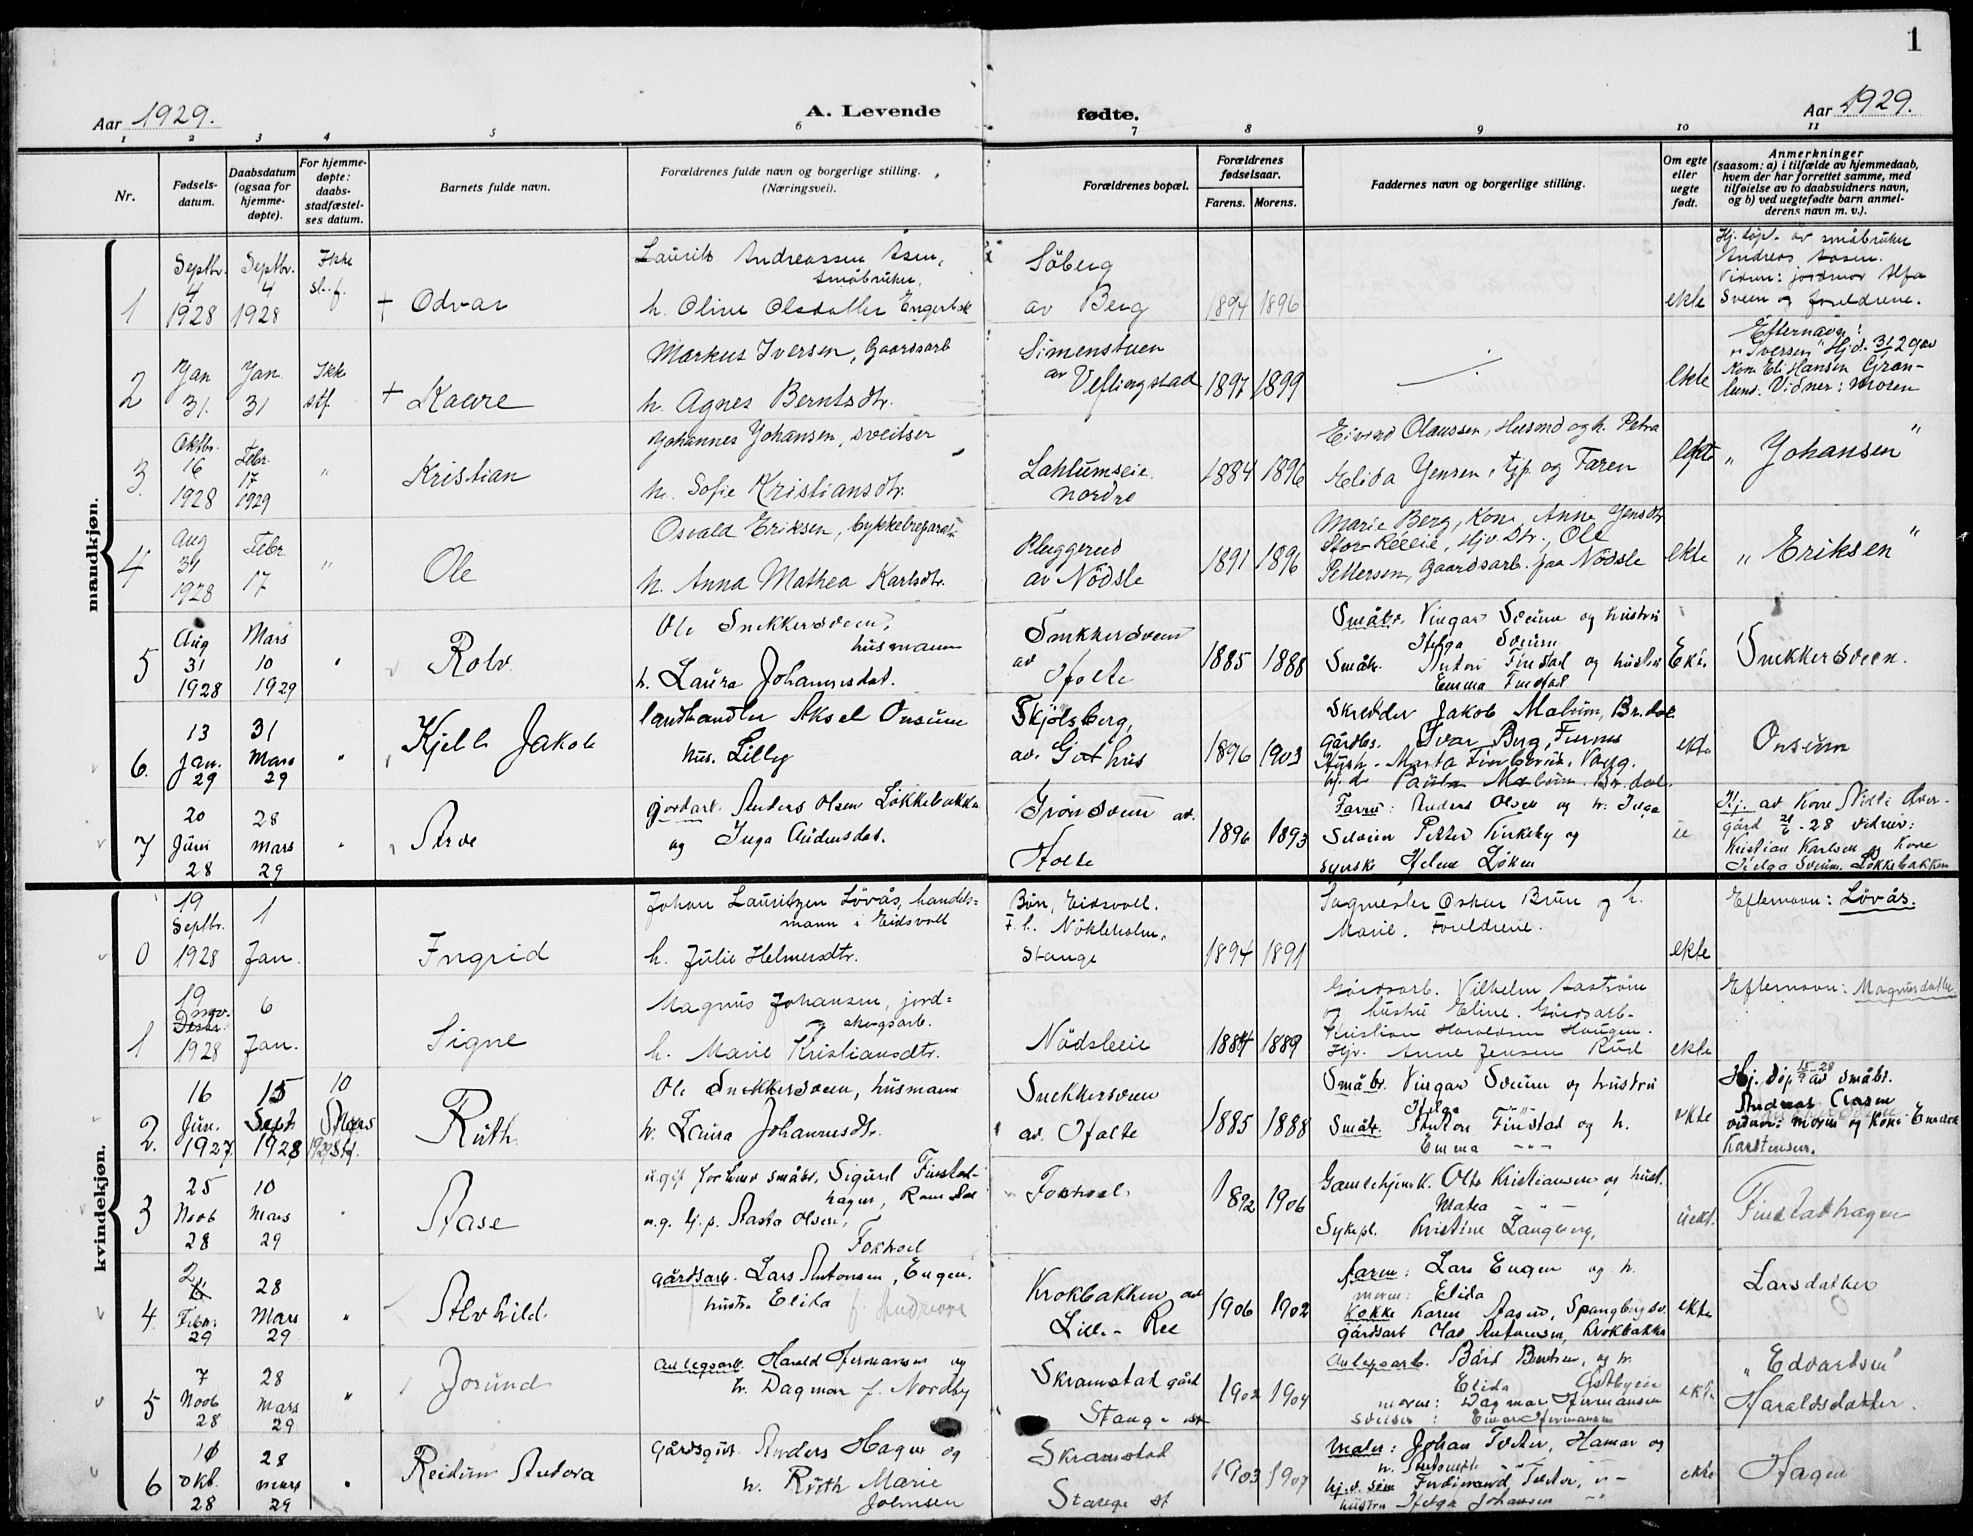 1
Aar 1929.
A. Levende fødte.
Aar 1929.
1 2 3 4 5 6 7 8 9 10 11
Nr.
Fødsels-
datum.
Daabsdatum
(ogsaa for
hjemme-
døpte).
For hjemme-
døpte:
daabs-
stadfæstel-
ses datum.
Barnets fulde navn.
Forældrenes fulde navn og borgerlige stilling.
(Næringsvei).
Forældrenes bopæl.
Forældrenes
fødselsaar.
Farens. Morens.
Faddernes navn og borgerlige stilling.
Om egte
eller
uegte
født.
Anmerkninger
(saasom: a) i tilfælde av hjemmedaab,
hvem der har forrettet samme, med
tilføielse av to daabsvidners navn,
og b) ved uegtefødte barn anmel-
derens navn m. v.).
mandkjøn.
1
Septbr.
4
1928
Septbr.
4
1928
Ikke
st. f.
+ Odvar
Laurits Andreassen Åsen,
småbruker,
h. Oline Olsdatter
Söberg
av Berg
1894 1896
ekte
Hj. döpt av småbruker
Andreas Aasen.
Vidner: jordmor Alfa
Sveen og foreldrene.
2
Jan
31.
Jan.
31
Ikke
stf.
+ Kaare
Markus Iversen, Gaardsarb
h. Agnes Berntsdtr.
Simenstuen
av Veflingstad
1897 1899
ekte
Efternavn:
"Iversen" Hjd. 31/1 29 av
Kone Eli Hansen Grøn-
lund. Vidner: moren
3.
Oktbr.
16
1928
Febr.
17
1929
"
Kristian
Johannes Johansen, sveitser
h. Sofie Kristiansdtr.
Lahlumseie
nordre
1884 1896
Eivind Olaussen, Husmd og h. Petra
Elida Jensen, tjp. og Faren
ekte
" Johansen "
4
Aug
31
1928
Febr.
17
"
Ole
Osvald Eriksen, cykkelreparatør
h. Anna Mathea Karlsdtr.
Pluggerud
av Nödsle
1891 1896
Marie Berg, Kone, Anne Jensdtr
Stor-Reeie, Hjv. Dtr., Ole
Pettersen, Gaardsarb. paa Nödsle
ekte
" Eriksen "
5
Aug
31
1928
Mars
10
1929
"
Rolv.
Ole Snekkersveen,
husmann
h. Laura Johannesdat.
Snekkersveen
av
Hjolte
1885 1888
Småbr. Vingar Sveum og hustru
Helga Sveum
Småbr. Anton Finstad og hustru
Emma Finstad
Ekt.
Snekkersveen.
6.
13
Jan.
29
31
Mars
29
"
Kjell Jakob
landhandler Aksel Onsum
hus. Lilly
Skjolsberg,
av. Gjøthus
1896 1903
Skredder Jakob Malum,
Gårdbr. Ivar Berg,
ekte
Onsum
7
20
Juni
28
28
mars
29
"
Arve
gordarb. Anders Olsen Løkkebakke
og Inga Andersdat.
Grønsveen av.
Hjolte
1896 1893
Farne: Anders Olsen og h. Inga
og
Helene Løken
ue
Hj. av Kone
gård 21/6 - 28 vidner:
Kristian Karlsen og Kone
Helga Sveum. Løkkebakken
kvindekjøn.
0
19
Septbr.
1928
1
Jan.
Ingrid
Johan Lauritzen Lövås, handels=
mann i Eidsvoll
h. Julie Helmersdtr.
Bön, Eidsvoll.
F. t. Nökleholm,
Stange
1894 1891
Sagmester Oskar Brun og h.
Marie. Foreldrene.
ekte
Efternavn: Lövås.
1
19
nov.
Desbr.
1928
6
Jan.
Signe
Magnus Johansen, jord=
og skogsarb.
h. Marie Kristiansdtr.
Nödsleeie
1884 1889
Gårdsarb. Vilhelm Aaström
og hustru Eline. Gårdsarb.
Kristian Haraldsen Haugen.
Hjv. Anne Jensen Rud
ekte
Efternavn: Magnusdatter
2.
16
Jun.
1927
15
Sept
1928
10
Mars
1929 Stf.
Ruth.
Ole Snekkersveen, husmann
h. Laura Johannesdtr.
Snekkersveen
av. Hjolte
1885 1888
Småbr. Vingar Sveum og hustru
Helga "
Småbr. Anton Finstad og h.
Emma - " -
ekte
Hj. döp 15/9-28 av småbr.
Andreas Aasen
vidner: moren og Kone
Karstensen.
3
25
Novb
28
10
Mars
29
"
Aase
ugift forhenv. småbr. Sigurd Finstad-
hagen,
u.g. tj. p. Aasta Olsen,
Fokhol
Fokhol.
1892 1906
Otto Kristiansen og hust.
Matea
Sykepl. Kristine Langberg,
uekt.
Finstadhagen
4.
2
Febr.
29
28
Mars
29
"
Alvhild.
gårdsarb. Lars Antonsen, Engen.
hustr. Elida
Krokbakken av
Lille-Ree
1906 1902
faren: Lars Engen og h.
moren: Elida
Kokke Karen Aasen,
gårdsarb Antonsen, Krokbakken
ekte
Larsdatter
5
7
Novb
28
28
Mars
29
"
Jorund
anlegsarb. Harald Hermansen og
h. Dagmar f. Nordby
Skramstad gård
Stange
1902 1904
anlegsarb. Bård Berntsen, og h.
Elida Østbyeie
moren: Dagmar Hermansen
sveiser: Einar Hermansen
ekte
"Edvardsen"
Haraldsdatter.
6
Okt.
28
28
mars
29
"
Reidun Andora
Gårdsgut. Anders Hagen og
h. Ruth Marie
Johnsen
Skramstad
Stange st
1903 1907
Maler: Johan Tveter, Hamar og
Ferdinand Tveter, - " -
hustru Helga Johansen - " -
ekte
Hagen